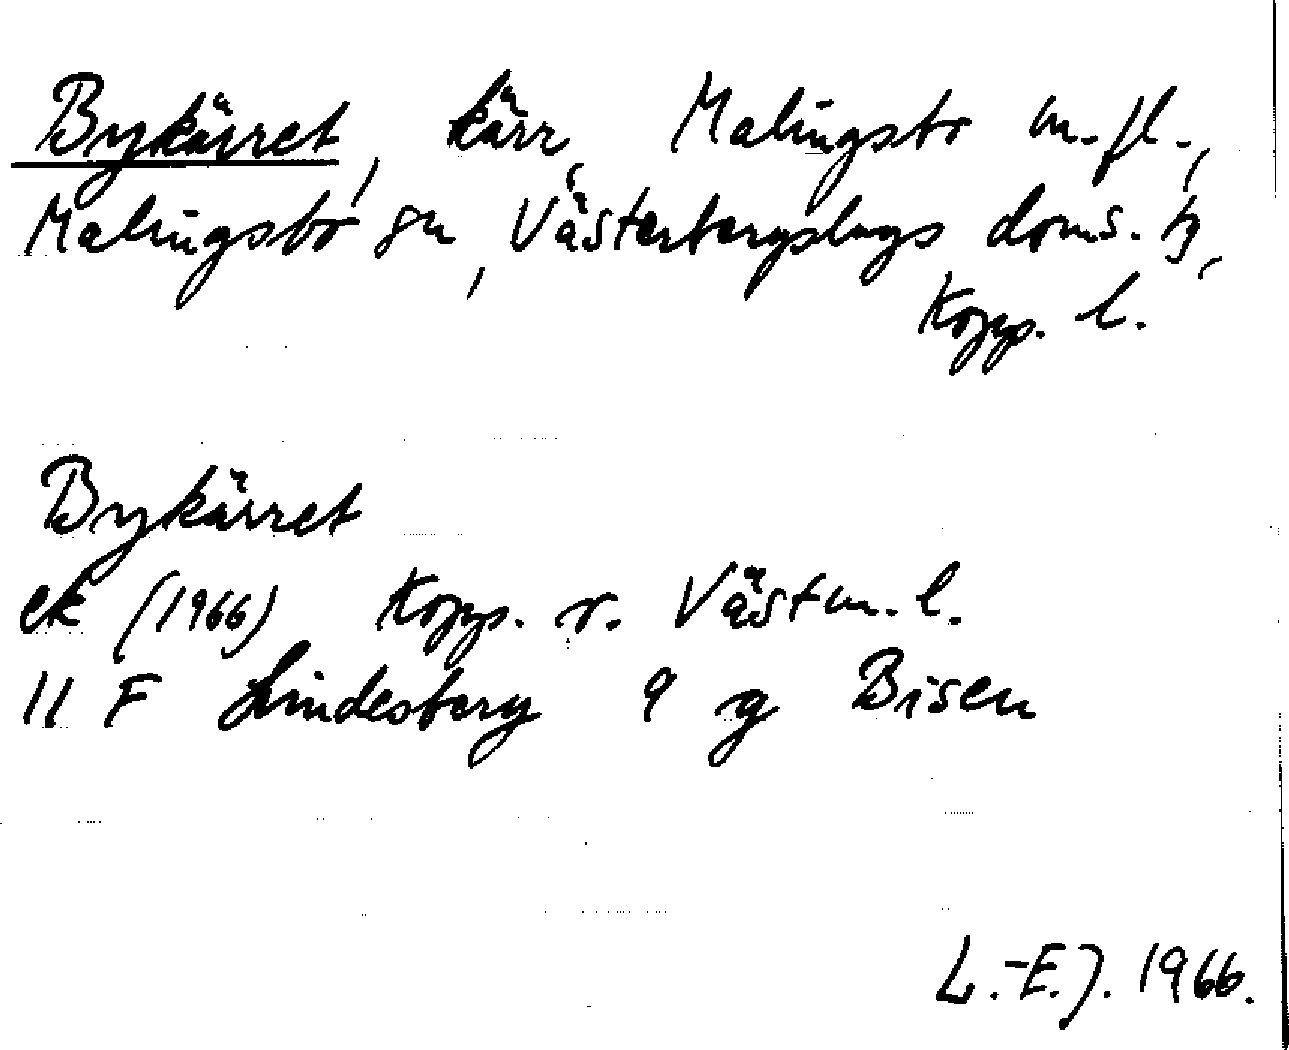 Bykärret, kärr, Malingsbo m.fl.,
Malingsbo sn, Västerbergslags doms. tg,
Kopp. l.
Bykärret
ek (1966) Kopp. o. Västm. l.
11 F Lindesberg 9 g Bisen
L.-E.J. 1966.